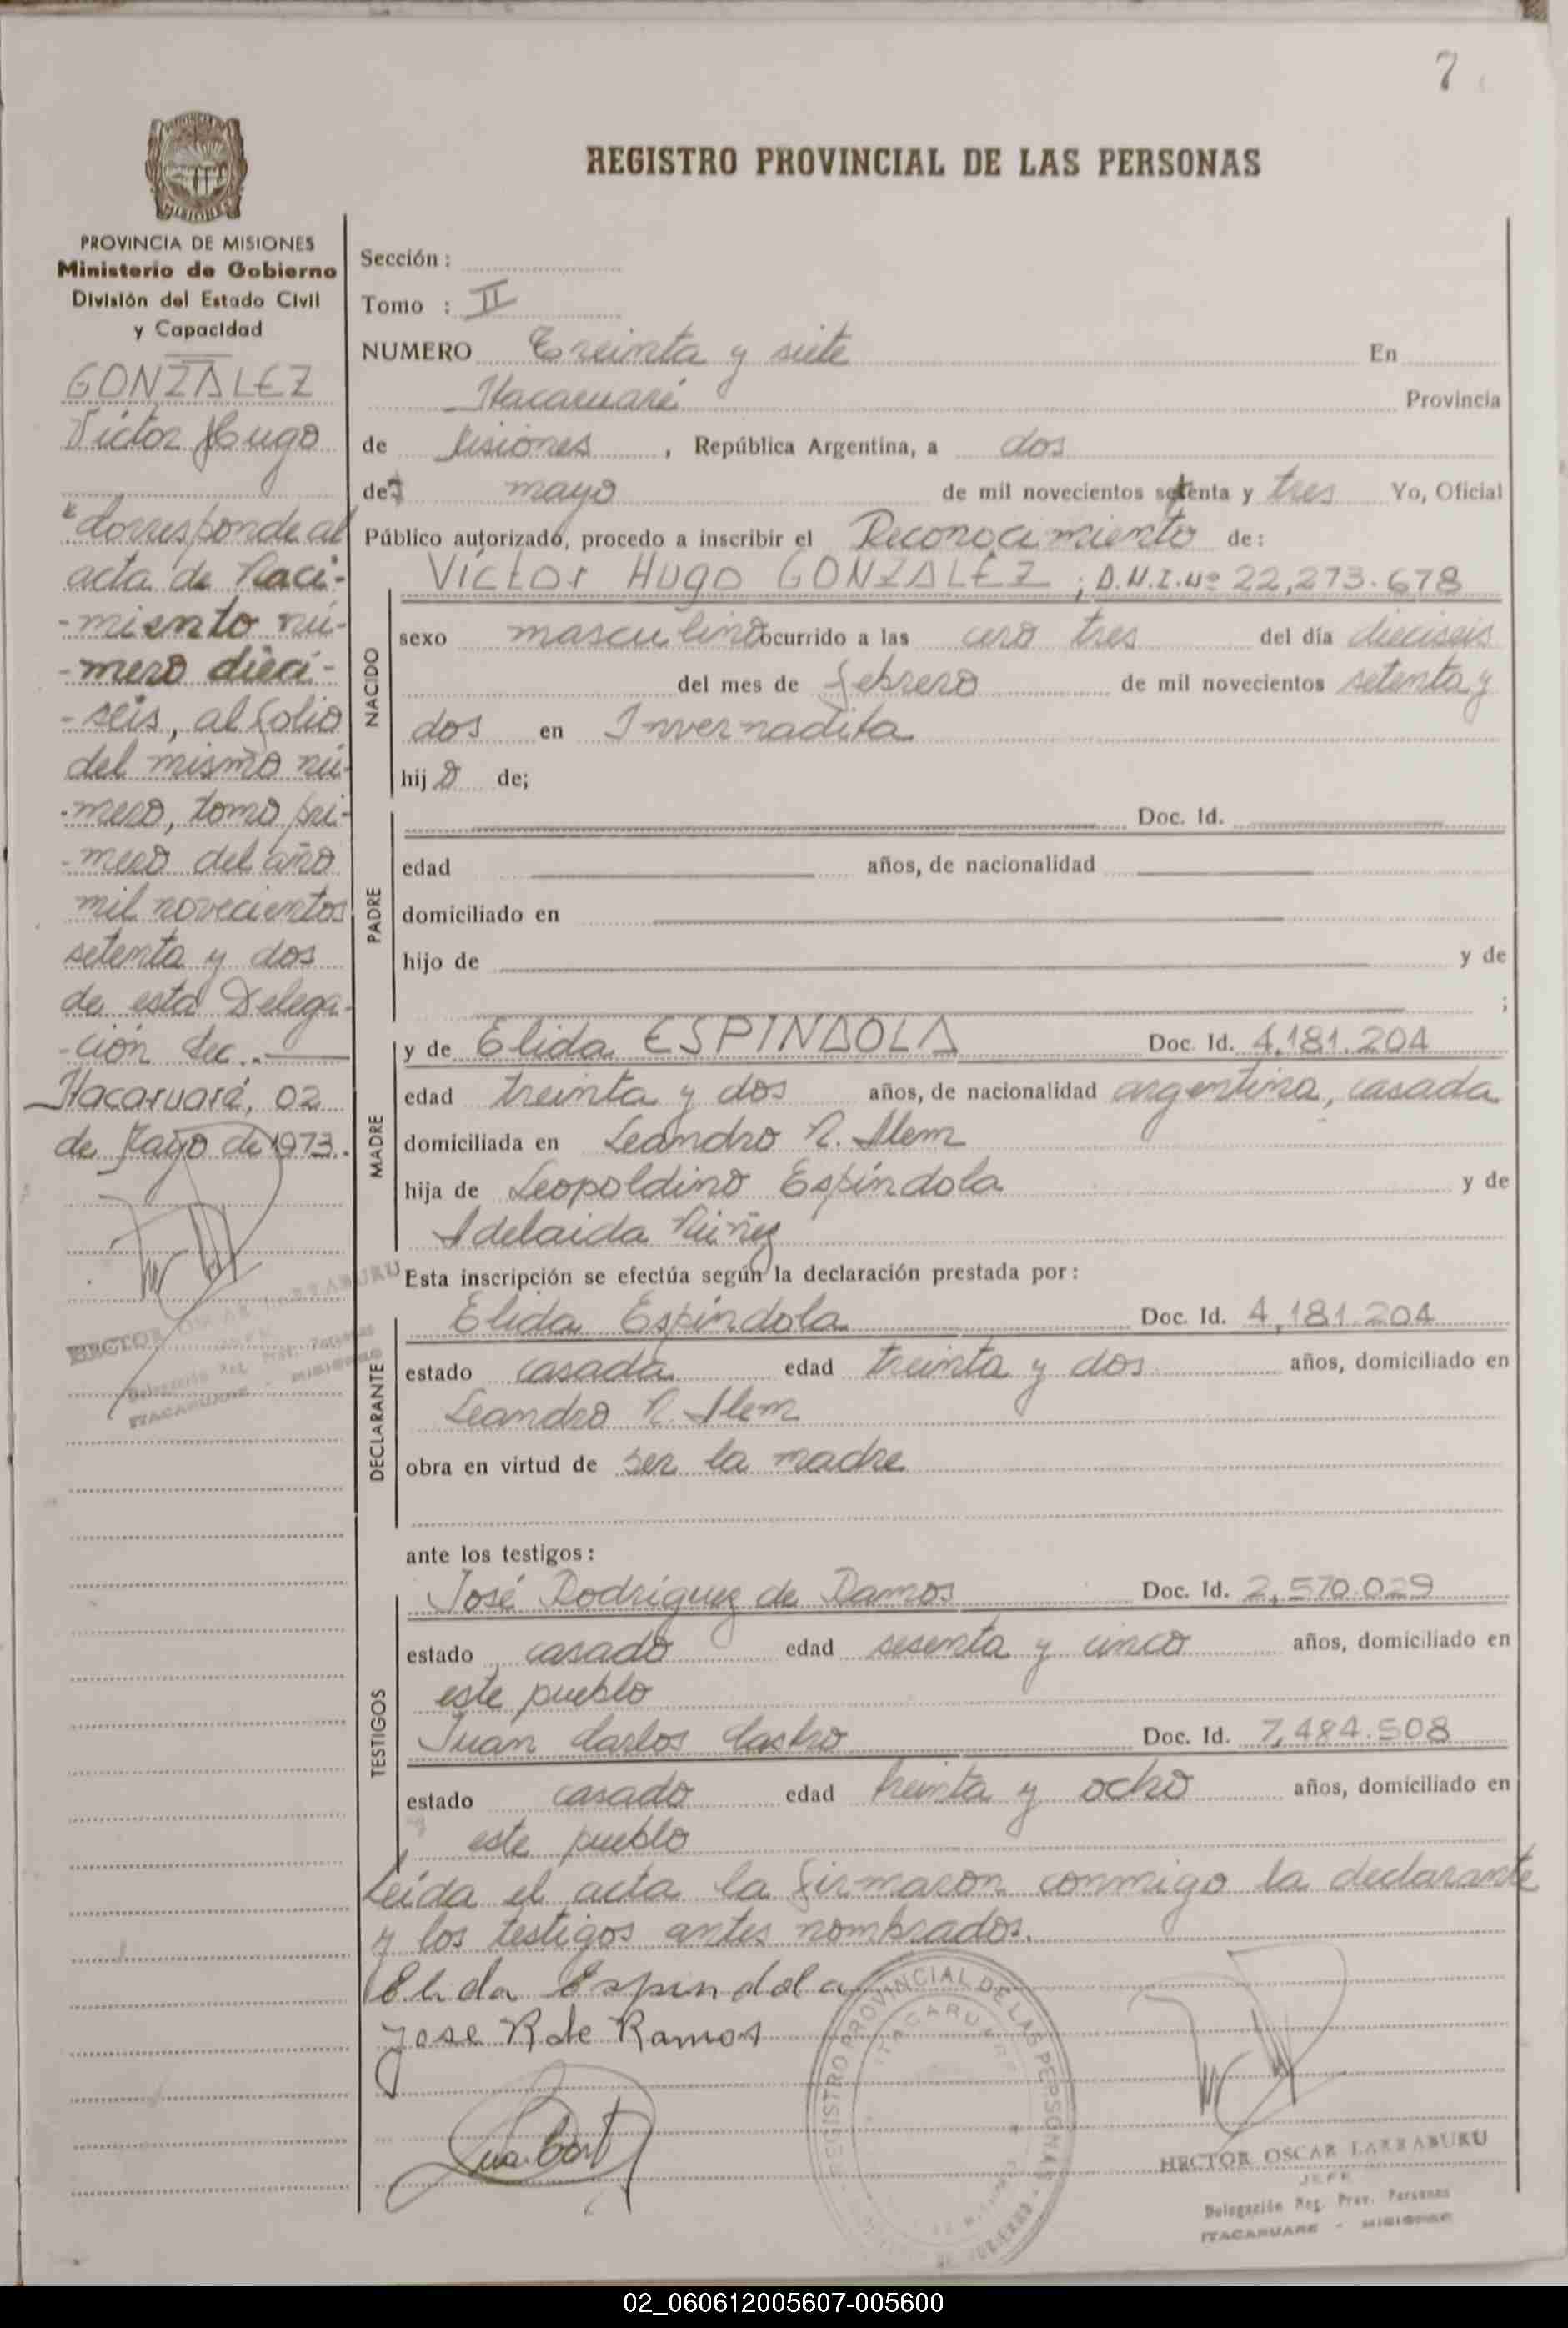 7
REGISTRO PROVINCIAL DE LAS PERSONAS
PROVINCIA DE MISIONES
Ministerio de Gobierno
División del Estado Civil
y Capacidad
GONZALEZ
Victor Hugo
Corresponde al
acta de Naci-
-miento nú-
-mero dieci-
-seis, al folio
del mismo nú-
-mero, tomo pri-
-mero del año
mil novecientos
setenta y dos
de esta Delega-
-ción Sec.
Itacaruaré, 02
de Mayo de 1973.
HECTOR OSCAR LARRABURU
JEFE
Delegación Reg. Prov. Personas
ITACARUARE - MISIONES
Sección :
Tomo : II
NUMERO Treinta y siete En
Itacaruaré Provincia
de Misiones , República Argentina, a dos
de mayo de mil novecientos setenta y tres Yo, Oficial
Público autorizado, procedo a inscribir el Reconocimiento de:
NACIDO
Víctor Hugo GONZALEZ ; D.N.I. Nº 22,273.678
sexo masculino ocurrido a las cero tres del día dieciseis
del mes de febrero de mil novecientos setenta y
dos en Invernadita
hijo de;
PADRE
Doc. Id.
edad años, de nacionalidad
domiciliado en
hijo de y de
;
MADRE
y de Elida ESPINDOLA Doc. Id. 4,181.204
edad treinta y dos años, de nacionalidad argentina, casada
domiciliada en Leandro N. Alem
hija de Leopoldino Espíndola y de
Adelaida Núñez
Esta inscripción se efectúa según la declaración prestada por:
DECLARANTE
Elida Espíndola Doc. Id. 4,181.204
estado casada edad treinta y dos años, domiciliado en
Leandro N. Alem
obra en virtud de ser la madre
ante los testigos:
TESTIGOS
José Rodríguez de Ramos Doc. Id. 2,570.029
estado casado edad sesenta y cinco años, domiciliado en
este pueblo
Juan Carlos Castro Doc. Id. 7,484.508
estado casado edad treinta y ocho años, domiciliado en
este pueblo
Leída el acta la firmaron conmigo la declarante
y los testigos antes nombrados.
Elida Espindola
Jose R de Ramos
REGISTRO PROVINCIAL DE LAS PERSONAS
ITACARUARE
HECTOR OSCAR LARRABURU
JEFE
Delegación Reg. Prov. Personas
ITACARUARE - MISIONES
02_060612005607-005600